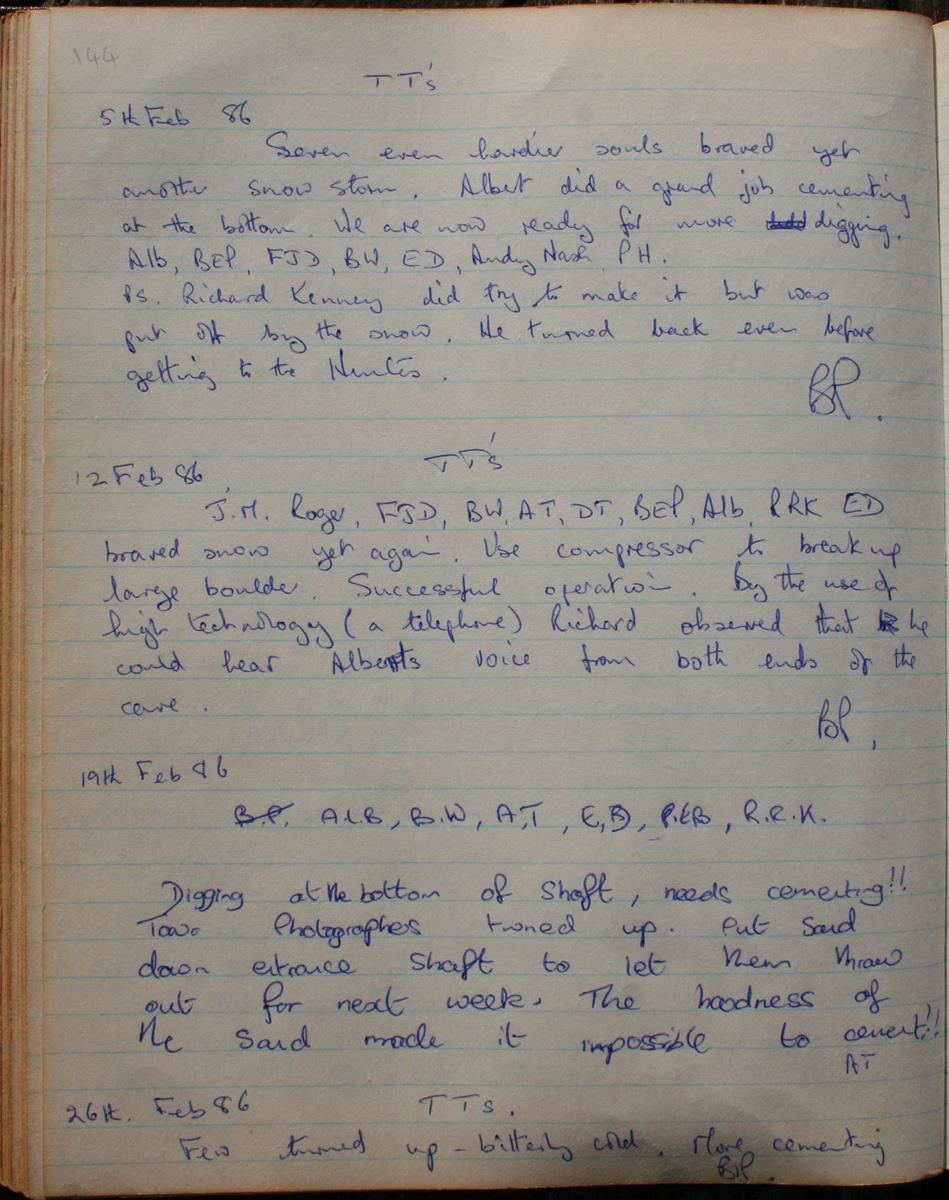 144
TT's
5th Feb 86
Seven even hardier souls braved yet
another snow storm. Albert did a grand job cementing
at the bottom. We are now ready for more digging.
Alb, BEP, FJD, BW, ED, Andy Nash PH.
Ps. Richard Kenney did try to make it but was
put off by the snow. He turned back even before
getting to the Hunters.
BP.
TT's
12 Feb 86
J.M. Roger, FJD, BW, AT, DT, BEP, Alb, RRK ED
braved snow yet again. Use compressor to break up
large boulder. Successful operation. By the use of
high technology (a telephone) Richard observed that he
could hear Alberts voice from both ends of the
cave.
BP,
19th Feb 86
B.P. ALB, B.W, A,T, E,D, P.EB, R.R.K.
Digging at the bottom of shaft, needs cementing!!
Two Photographes turned up. Put Sand
down entrance shaft to let them thraw
out for next week. The hoodness of
the Sand made it impossible to cement!!
AT
26th. Feb 86
TTs.
Few turned up - bitterly cold. More cementing
BP.